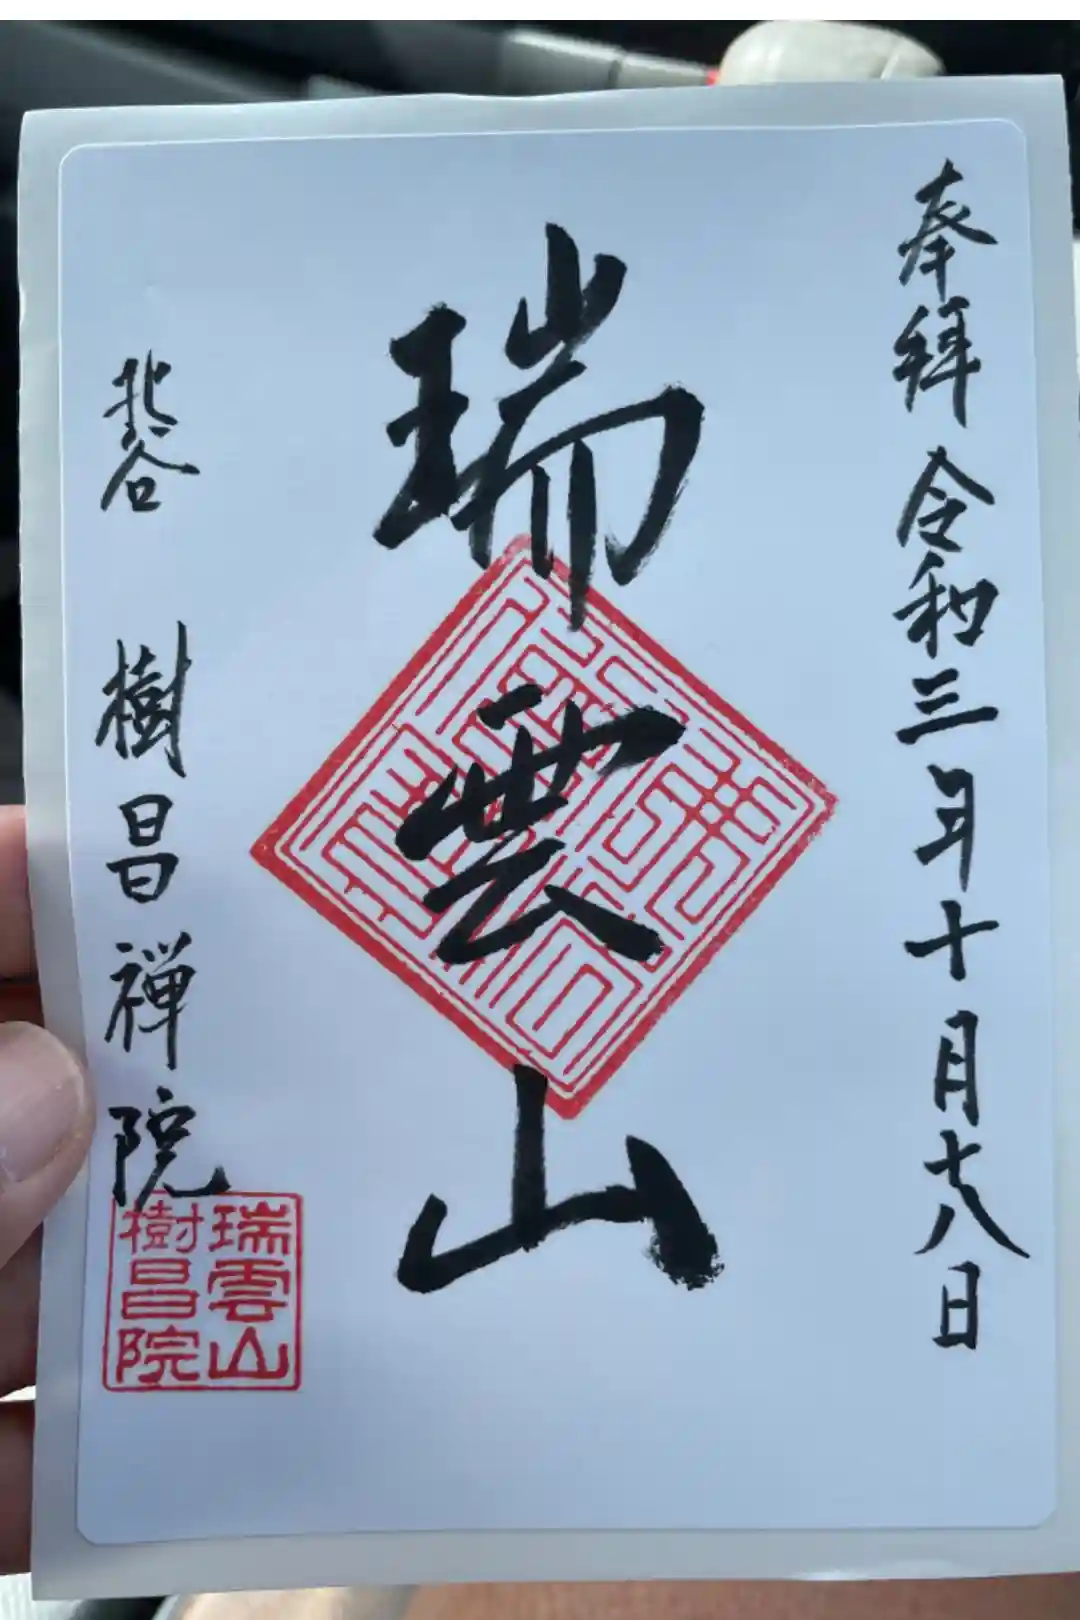 奉拝 令和三年十月廿八日
瑞雲山
樹昌禅院
瑞雲山
樹昌院